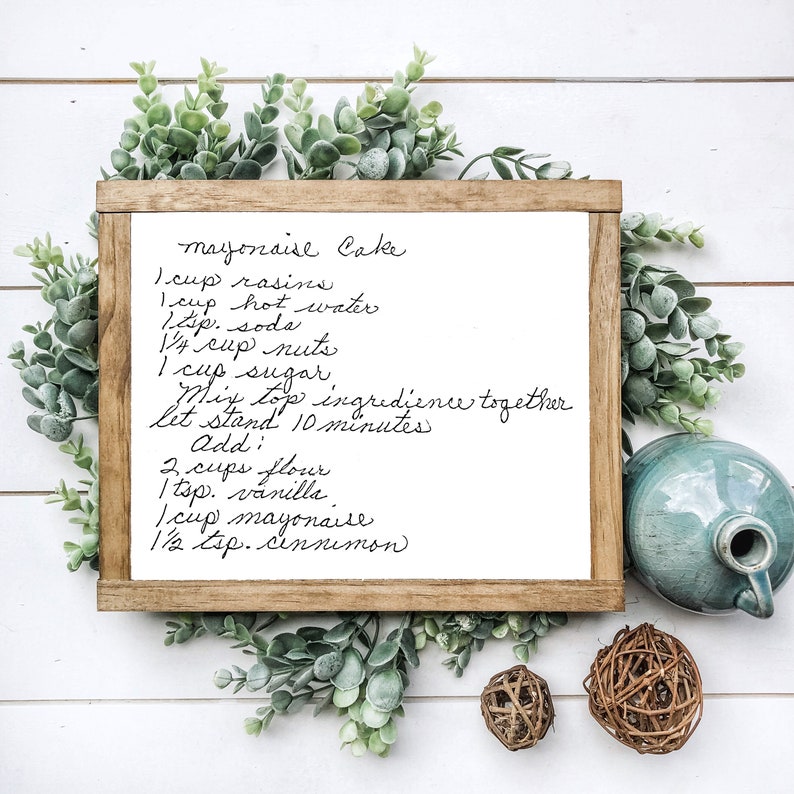 mayonaise Cake
1 cup rasins
1 cup hot water
1 tsp. soda
1 1/4 cup nuts
1 cup sugar
Mix top ingredience together
let stand 10 minutes
Add:
2 cups flour
1 tsp. vanilla
1 cup mayonaise
1 1/2 tsp. cennimon